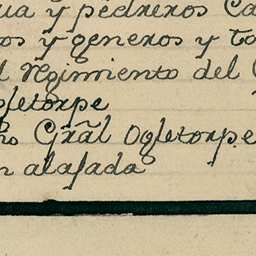 ua y pedreros Ca
os y generos y to
l regimiento del
gletorpe
ho Gräl Ogletorpe
n alajada